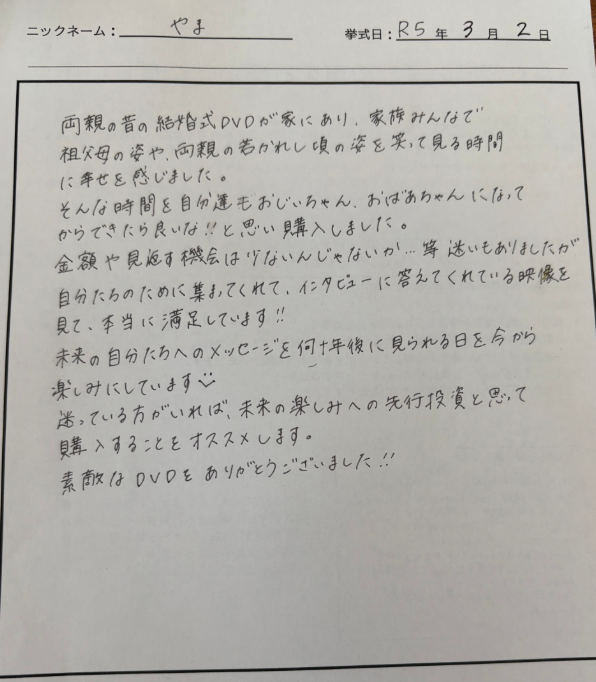 ニックネーム： やま 挙式日： R5 年 3 月 2 日
両親の昔の結婚式DVDが家にあり、家族みんなで
祖父母の姿や、両親の若かれし頃の姿を笑って見る時間
に幸せを感じました。
そんな時間を自分達もおじいちゃん、おばあちゃんになって
からできたら良いな!!と思い購入しました。
金額や見返す機会は少ないんじゃないか…等 迷いもありましたが
自分たちのために集まってくれて、インタビューに答えてくれている映像を
見て、本当に満足しています!!
未来の自分たちへのメッセージを何十年後に見られる日を今から
楽しみにしています
迷っている方がいれば、未来の楽しみへの先行投資と思って
購入することをオススメします。
素敵なDVDをありがとうございました!!